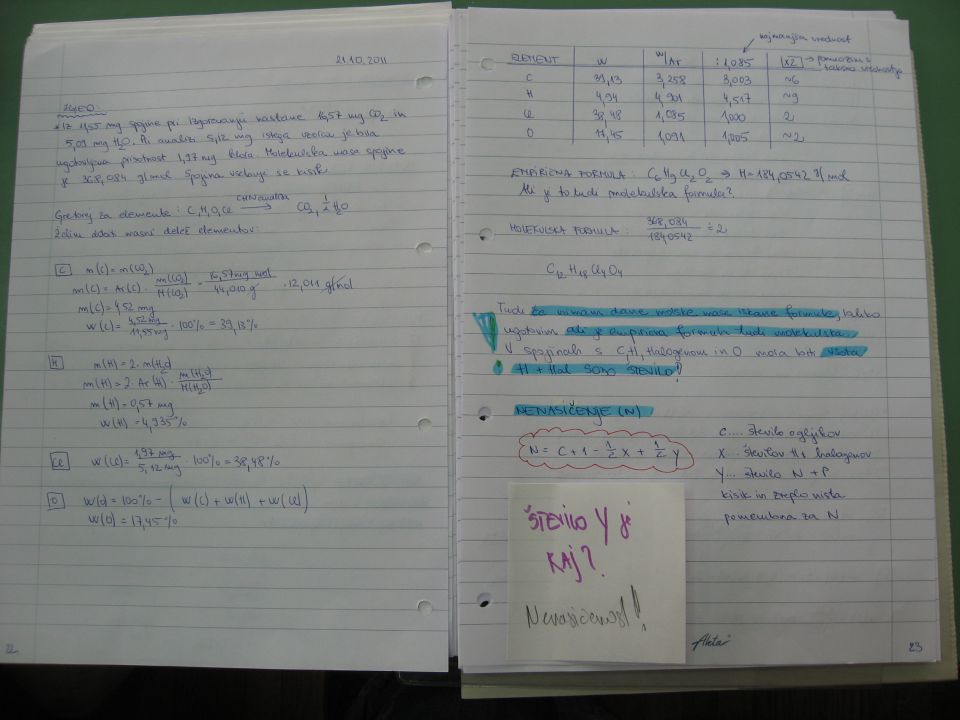 21.10.2011
ZGLED:
• Iz 11,55 mg spojine pri izgorevanju nastane 16,57 mg CO2 in
5,09 mg H2O. Pri analizi 5,12 mg istega vzorca je bila
ugotovljena prisotnost 1,97 mg klora. Molekulska masa spojine
je 368,084 g/mol. Spojina vsebuje še kisik
za elemente: C, H, O, Cl CHN analiza → CO2, ½ H2O
Želim dobit masni delež elementov:
C n(C) = n(CO2)
m(C) = Ar(C) · m(CO2)/M(CO2) = 16,57 mg mol/44,010 g · 12,011 g/mol
m(C) = 4,52 mg
w(C) = 4,52 mg/11,55 mg · 100% = 39,13%
H n(H) = 2 · n(H2O)
m(H) = 2 · Ar(H) · m(H2O)/M(H2O)
m(H) = 0,57 mg
w(H) = 4,935%
Cl w(Cl) = 1,97 mg/5,12 mg · 100% = 38,48%
O w(O) = 100% - (w(C) + w(H) + w(Cl))
w(O) = 17,45%
22
najmanjša vrednost
ELEMENT w w/Ar : 1,085 |x2| → pomnožim s
takšno vrednostjo
C 39,13 3,258 3,003 ~6
H 4,94 4,901 4,517 ~9
Cl 38,48 1,085 1,000 2
O 17,45 1,091 1,005 ~2
EMPIRIČNA FORMULA: C6H9Cl2O2 ⇒ M = 184,0542 g/mol
Ali je to tudi molekulska formula?
MOLEKULSKA FORMULA: 368,084/184,0542 = 2
C12H18Cl4O4
Tudi če nimam dane molske mase iskane formule, lahko
ugotovim ali je empirična formula tudi molekulska.
V spojinah s C, H, Halogenom in O mora biti vsota
H + Hal SODO ŠTEVILO!
NENASIČENJE (N)
N = C + 1 - ½ X + ½ Y
C.... število ogljikov
X... število H + halogenov
Y... število N + P
kisik in žveplo nista
pomembna za N
ŠTEVILO Y je
KAJ?
Nenasičenost!
Aleta
23